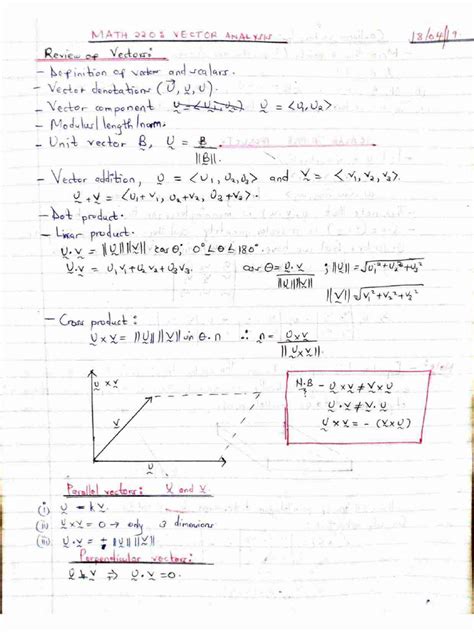 MATH 2202 VECTOR ANALYSIS 18/04/19
Review of Vectors:
- Definition of vector and scalars.
- Vector denotations (U, U, U).
- Vector component U = <U1, U2> U = <U1, U2>
- Modulus/length/norm.
- Unit vector B, U = B / ||B||.
- Vector addition, U = <U1, U2, U3> and V = <V1, V2, V3>.
U + V = <U1+V1, U2+V2, U3+V3>.
- Dot product.
- Linear product.
U.V = ||U|| ||V|| cos θ, 0° ≤ θ ≤ 180°.
U.V = U1V1 + U2V2 + U3V3. cos θ = U.V / ||U|| ||V|| ; ||U|| = √U1² + U2² + U3²
||V|| = √V1² + V2² + V3²
- Cross product:
U x V = ||U|| ||V|| sin θ. n ∴ n = U x V / ||U x V||.
U x V
V
U
N.B - U x V ≠ V x U
U . V ≠ V . U
U x V = - (V x U)
Parallel vectors: U and V
(i) U = kV.
(ii) U x V = 0 → only 3 dimensions
(iii) U . V = ± ||U|| ||V||
Perpendicular vectors:
U V ⇒ U . V = 0.